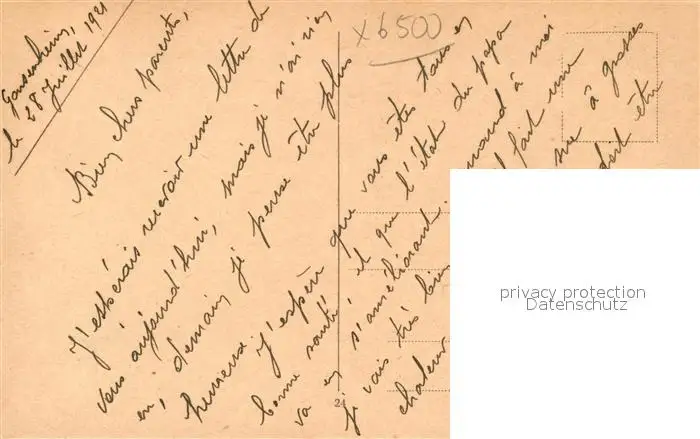 Gonsenheim,
le 28 Juillet 1921
x 6500
Bien chers parents,
J'espérais recevoir une lettre de
vous aujourd'hui, mais je n'ai rien
eu, demain, je pense être plus
heureuse. J'espère que vous êtes tous en
bonne santé et que l'état du papa
va en s'améliorant.
je vais très bien
chaleur
à moi
il fait une
à grosses
être
24
privacy protection
Datenschutz